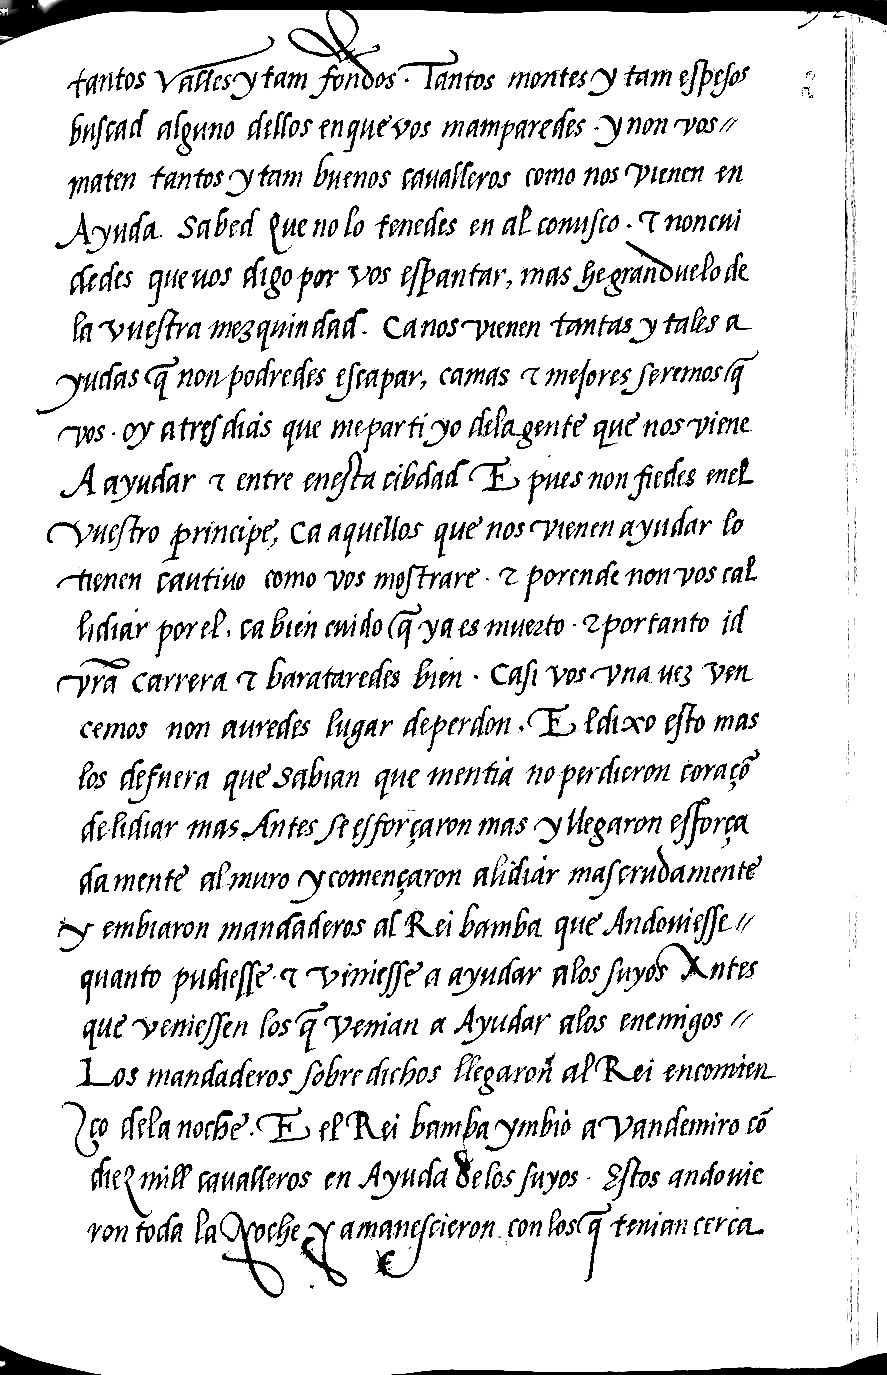 tantos valles y tam fondos. Tantos montes y tam espesos
buscad alguno dellos en que vos mamparedes. y non vos //
maten tantos y tam buenos cavalleros como nos vienen en
Ayuda. sabed que no lo tenedes en al conusco. τ non cui
dedes que uos digo por vos espantar, mas he gran duelo de
la vuestra mezquindad. Ca nos vienen tantas y tales a
yudas q̃ non podredes escapar, ca mas τ mejores seremos q̃
vos. oy a tres dias que me parti yo dela gente que nos viene
A ayudar τ entre en esta cibdad E pues non fiedes en el
vuestro principe, Ca aquellos que nos vienen ayudar lo
tienen cautiuo como vos mostrare. τ por ende non vos cal
lidiar por el, ca bien cuido q̃ ya es muerto. τ por tanto id
vr̃a carrera τ barataredes bien. Ca si vos vna uez ven
cemos non auredes lugar de perdon. El dixo esto mas
los de fuera que sabian que mentia no perdieron coraçõ
de lidiar mas Antes se esforçaron mas y llegaron esforça
da mente al muro y començaron a lidiar mas crudamente
y embiaron mandaderos al Rei bamba que Andouiesse //
quanto pudiesse. τ viniesse a ayudar a los suyos Antes
que veniessen los q̃ venian a Ayudar a los enemigos //
Los mandaderos sobre dichos llegaron̄ al Rei en comien
ço de la noche. E el Rei bamba ymbio a Vandemiro cõ
diez mill cavalleros en Ayuda de los suyos. Estos andouie
ron toda la Noche y amanescieron con los q̃ tenian cerca